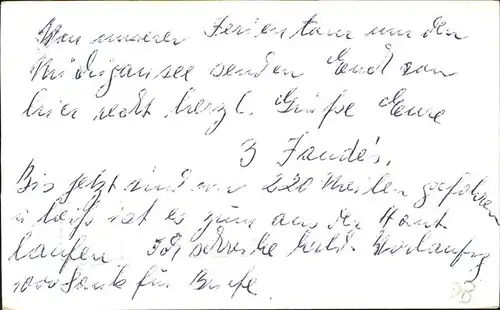 Von unserer Ferientour um den
Michigansee senden Euch von
hier recht herzl. Grüße Eure
3 Jaude's.
Bis jetzt sind wir 220 Meilen gefahren
u heiß ist es zum aus der Haut
laufen. Ich schreibe bald. Vorläufig
1000 Dank für Briefe.